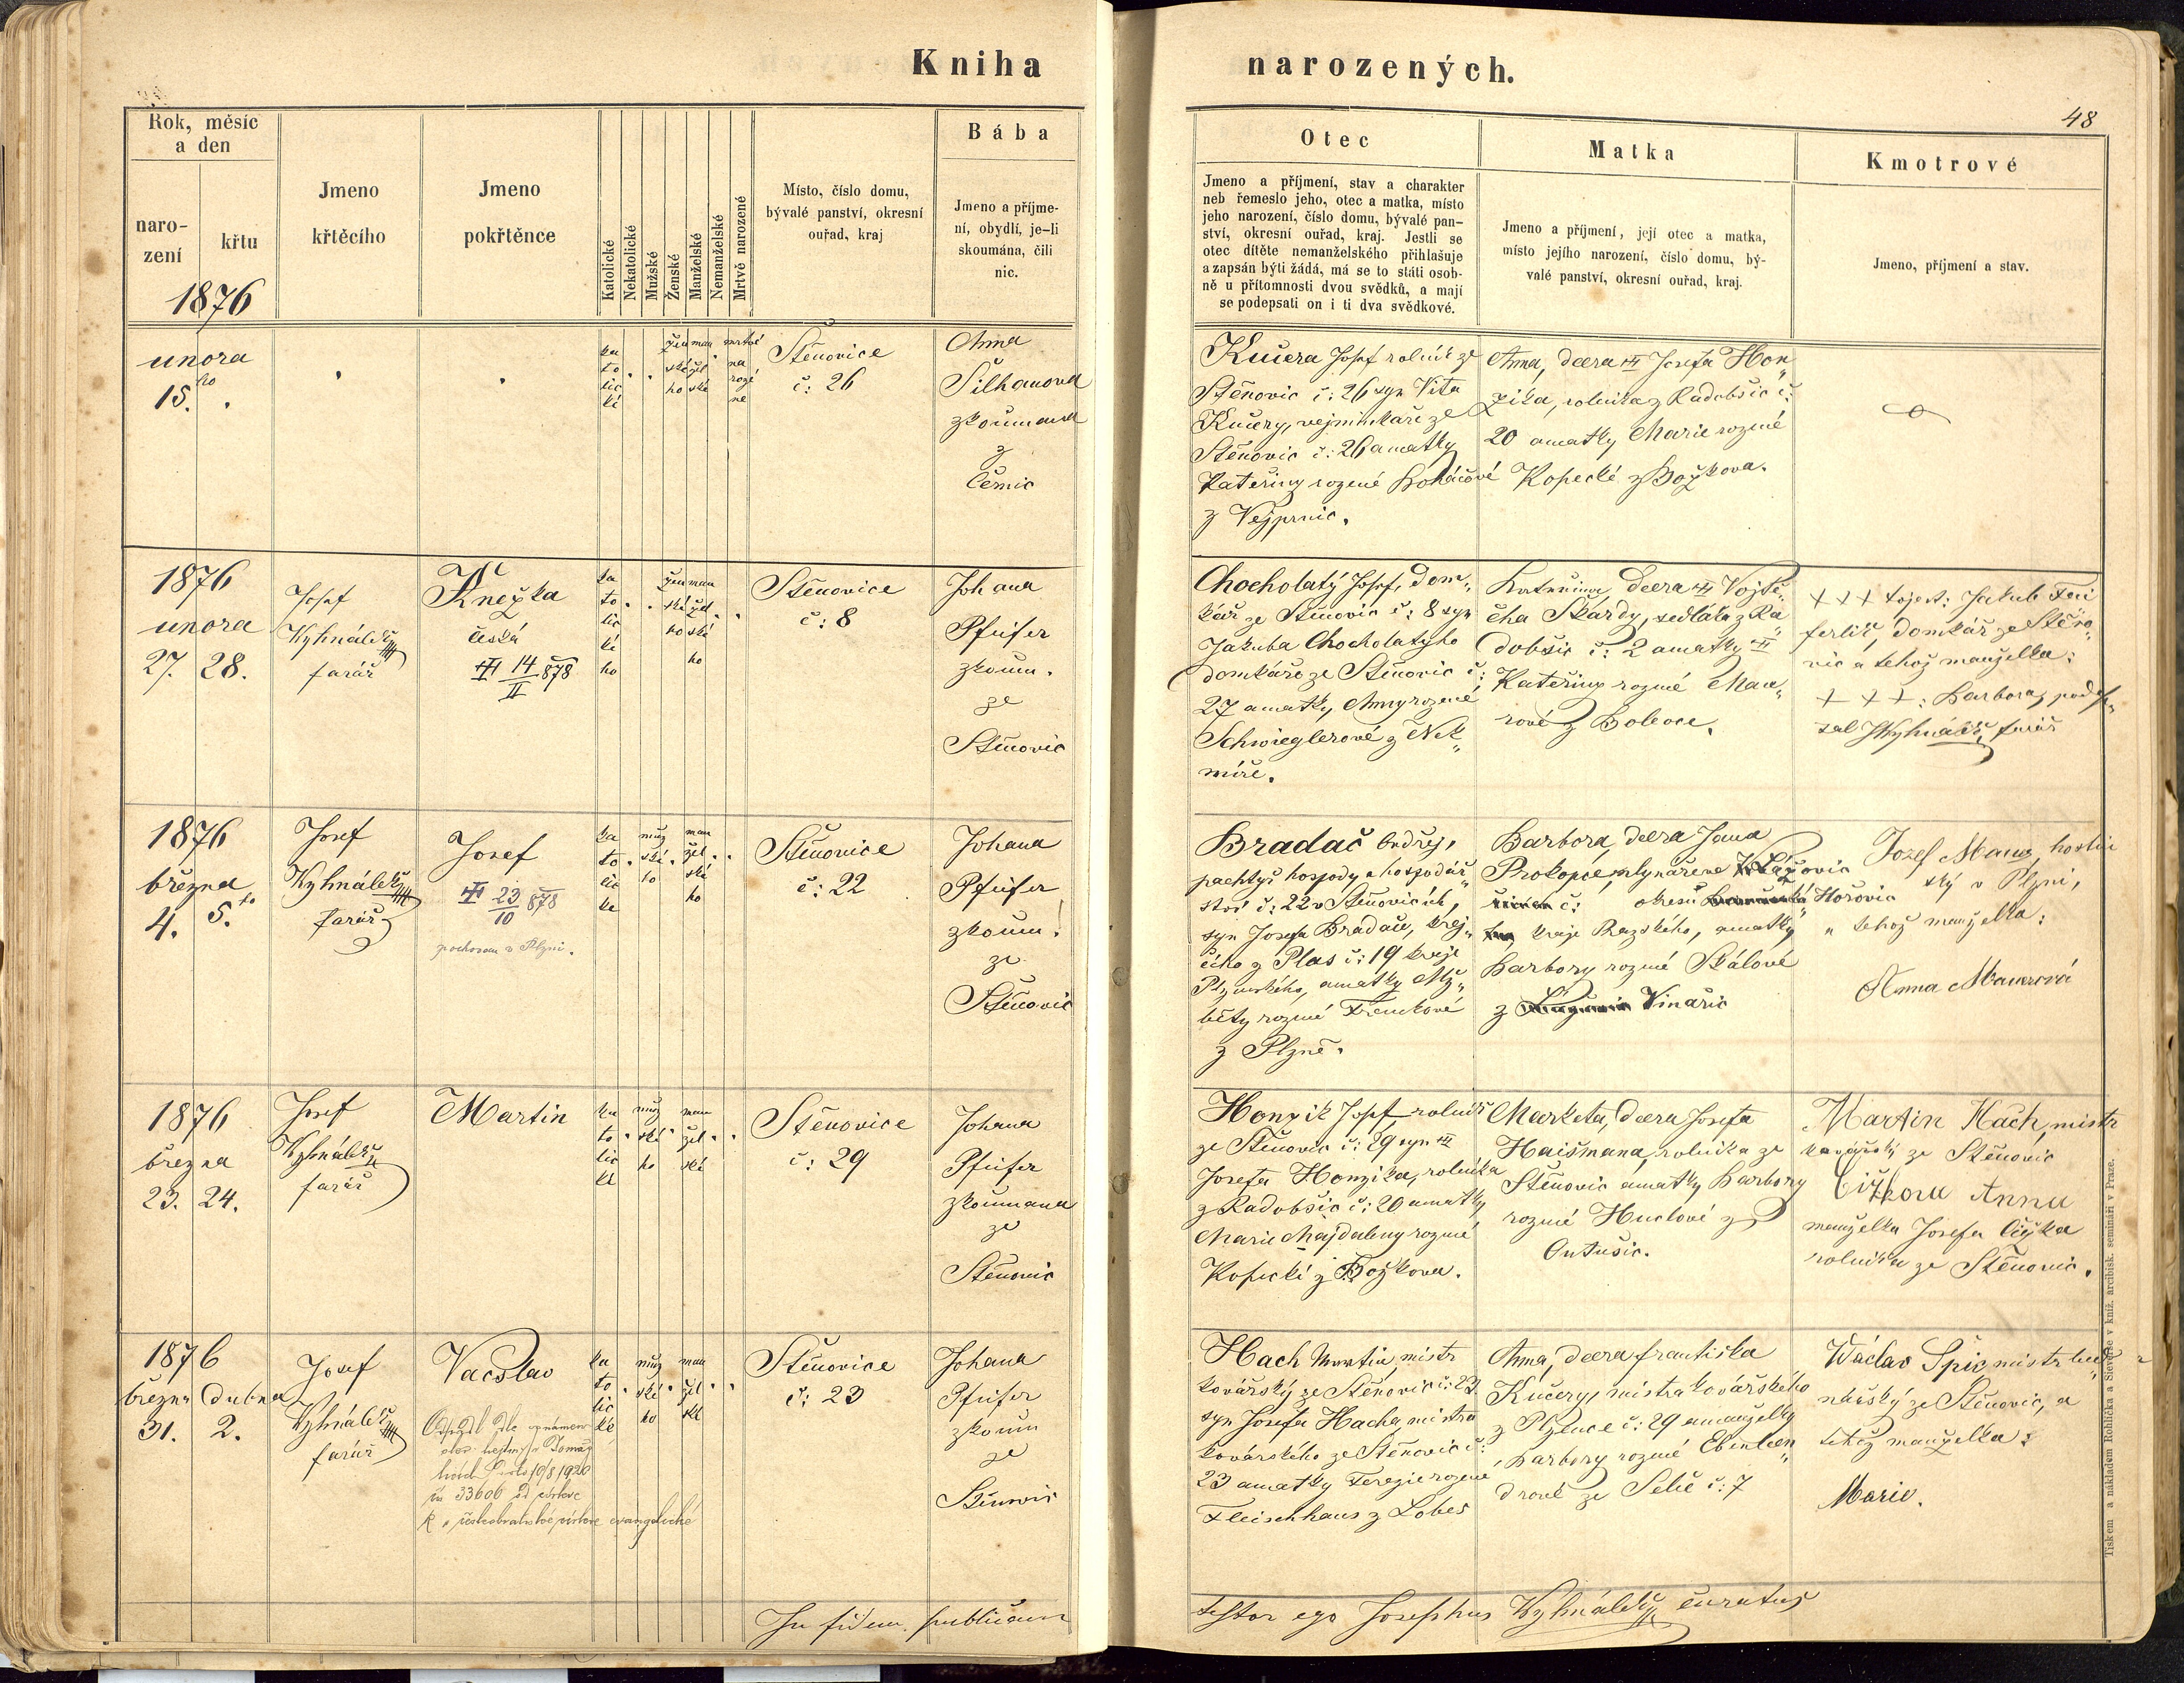 Kniha
narozených.
48
Rok, měsíc
a den
naro-
zení
křtu
1876
Jmeno
křtěcího
Jmeno
pokřtěnce
Katolické
Nekatolické
Mužské
Ženské
Manželské
Nemanželské
Mrtvě narozené
Místo, číslo domu,
bývalé panství, okresní
ouřad, kraj
Bába
Jmeno a příjme-
ní, obydlí, je-li
skoumána, čili
nic.
Otec
Jmeno a příjmení, stav a charakter
neb řemeslo jeho, otec a matka, místo
jeho narození, číslo domu, bývalé pan-
ství, okresní ouřad, kraj. Jestli se
otec dítěte nemanželského přihlašuje
a zapsán býti žádá, má se to státi osob-
ně u přítomnosti dvou svědků, a mají
se podepsati on i ti dva svědkové.
Matka
Jmeno a příjmení, její otec a matka,
místo jejího narození, číslo domu, bý-
valé panství, okresní ouřad, kraj.
Kmotrové
Jmeno, příjmení a stav.
února
15.ho
ka
to
lic
ké
žen
ské
ho
man
žel
ské
mrtvě
na
roze
né
Štěnovice
č: 26
Anna
Šilhanova
zkoumana
z
Čemic
Kučera Josef rolník ze
Štěnovic č: 26 syn Víta
Kučery, vejminkáře ze
Štěnovic č: 26 a matky
Kateřiny rozené
z Vejprnic.
Anna, dcera Josefa Hon„
zíka, rolníka z Radobšic č:
20 a matky Marie rozené
Kopecké z Božkova.
1876
února
27. 28.
Josef
Vyhnálek
farář
Kněžka
česká
14/II 878
ka
to
lic
ké
ho
žen
ské
ho
man
žel
ské
ho
Štěnovice
č: 8
Johana
Pfeifer
zkoum.
ze
Štěnovic
Chocholatý Josef, dom„
kář ze Štěnovic č: 8 syn
Jakuba Chocholatýho
domkáře ze Štěnovic č:
27 a matky, Anny rozené
Schwieglerové z Nek„
míře.
Kateřina, dcera Vojtě„
cha Škardy, sedláka z Ra„
dobšic č: 2 a matky
Kateřiny rozené Mau„
rové z Bolevce.
+++ to jest: Jakub
domkář ze Štěno„
vic a tehož manželka:
+++: Barbora, pode„
sal JVyhnálek, farář
1876
března
4. 5.ho
Josef
Vyhnálek
farář
Josef
23/10 878
pochovan v Plzni.
ka
to
lic
ké
muž
ské
ho
man
žel
ské
ho
Štěnovice
č: 22
Johana
Pfeifer
zkoum!
ze
Štěnovic
Bradač Ondřej,
pachtýř hospody a hospodář„
ství č: 22 v Štěnovicích,
syn Josefa Bradače, krej„
čího z Plas č: 19 kraje
Plzenského, a matky Alž„
běty rozené
z Plzně.
Barbora, dcera Jana
Prokopce, mlynáře ve
č: okresu Hořovic
kraje Pražského, a matky
Barbory rozené Skálové
z Vinařic
Josef Mauer, hostin
ský v Plzni,
a tehož manželka:
Anna Mauerová
1876
března
23. 24.
Josef
Vyhnálek
farář
Martin
ka
to
lic
ké
muž
ské
ho
man
žel
ské
Štěnovice
č: 29
Johana
Pfeifer
zkoumana
ze
Štěnovic
Honzik Josef, rolník
ze Štěnovic č: 29 syn
Josefa Honzíka, rolníka
z Radobšic č: 20 a matky
Marie Majdaleny rozené
Kopecké z Božkova.
Marketa, dcera Josefa
Haišmana, rolníka ze
Štěnovic a matky Barbory
rozené z
Outušic.
Martin Hach, mistr
kovářský ze Štěnovic
Čížkova Anna
manželka Josefa Čížka
rolníka ze Štěnovic.
1876
března dubna
31. 2.
Josef
Vyhnálek
farář
Vacslav
10/8 1920
čís 33606 od církve
k českobratrské církve evangelické
ka
to
lic
ké
muž
ské
ho
man
žel
ské
Štěnovice
č: 23
Johana
Pfeifer
zkoum
ze
Štěnovic
Hach Martin, mistr
kovářský ze Štěnovic č: 23
syn Josefa Hacha, mistra
kovářského ze Štěnovic č:
23 a matky Terezie rozené
Fleischhans z Lobes
Anna, dcera Františka
Kučery, mistra kovářského
z Plzence č: 29 a manželky
Barbory rozené Ebenleen„
drové ze Selč č: 7
Wáclav Špic mistr
ze Štěnovic, a
tehož manželka:
Marie.
In fidem publicam
testor ego Josephus Vyhnálek curatus
Tiskem a nákladem Rohlíčka a Sieverse v kníž. arcibisk. semináři v Praze.